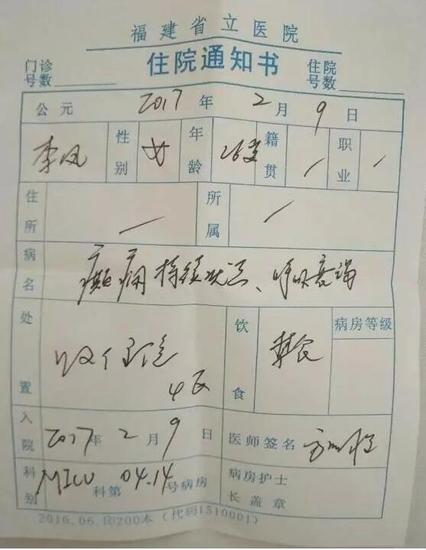 福建省立医院
住院通知书
门诊号数 住院号数
公元 2017 年 2 月 9 日
李凤 性别 女 年龄 26岁 籍贯 / 职业 /
住所 — 所属 /
病名 癫痫持续状态、呼吸衰竭
处置 收住 饮食 禁食 病房等级
入院 2017 年 2 月 9 日 医师签名
科别 MICU 科第 04.14 号病房 病房护士长盖章
2016.06.印200本(代码1510001)